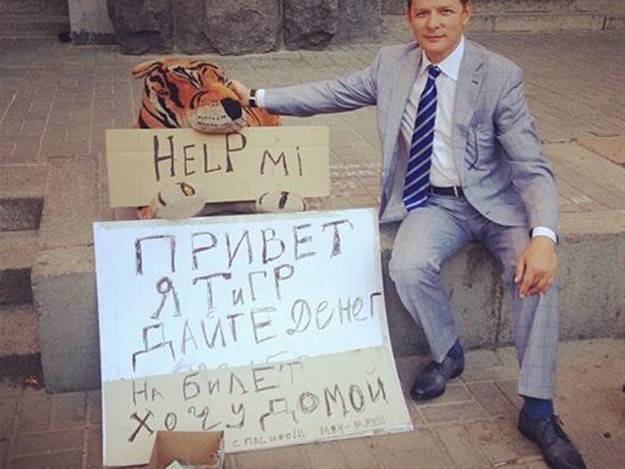 HELP Mi
ПРИВЕТ
Я ТиГР
ДАЙТЕ ДЕНЕГ
НА БИЛЕТ
ХОЧУ ДОМОЙ
МЯУ-МЯУ!!!